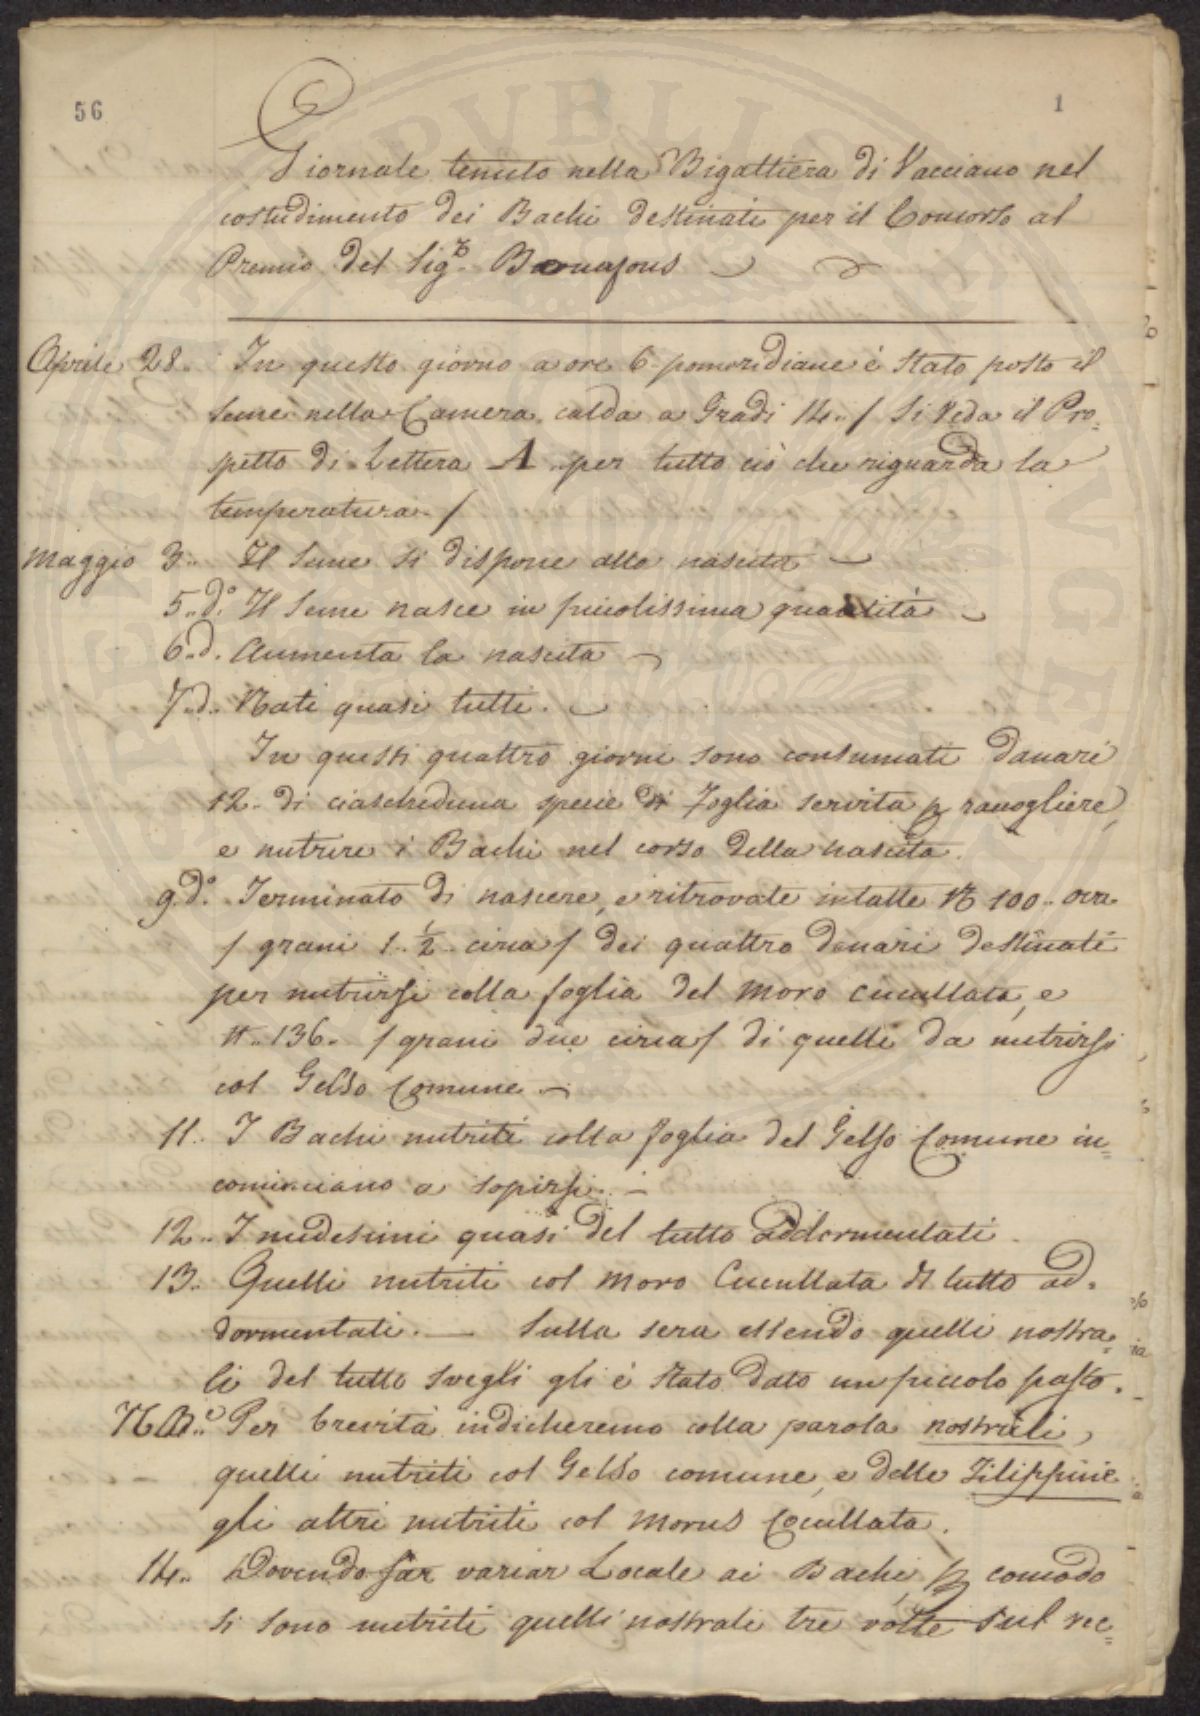 56
1
Giornale tenuto nella Bigattiera di Vacciano nel
costudimento dei Bachi destinati per il Concorso al
Premio del Sig.r Bonafous
Aprile 28. In questo giorno a ore 6 pomeridiane è stato posto il
seme nella Camera calda a Gradi 14.. / Si Veda il Pro=
spetto di Lettera A per tutto ciò che riguarda la
temperatura /
Maggio 3.. Il Seme si dispone alla nascita
5..d.o Il Seme nasce in piccolissima quantità
6..d. Aumenta la nascita
7..d.. Nati quasi tutti.
In questi quattro giorni sono consumati danari
12. di ciascheduna specie di Foglia servita p raccogliere,
e nutrire i Bachi nel corso della nascita.
9 d.o Terminato di nascere, e ritrovate intatte N 100.. ova
/ grani 1. 1/2 circa / dei quattro danari destinati
per nutrirsi colla foglia del Moro Cucullata, e
N.. 136. / grani due circa / di quelli da nutrirsi
col Gelso Comune
11. I Bachi nutriti colla foglia del Gelso Comune in=
cominciano a sopirsi
12.. I medesimi quasi del tutto addormentati.
13. Quelli nutriti col Moro Cucullata del tutto ad=
dormentati. — Sulla sera essendo quelli nostra=
li del tutto svegli gli è stato dato un piccolo pasto.
NB.e Per brevità indicheremo colla parola nostrali,
quelli nutriti col Gelso comune, e delle Filippine
gli altri nutriti col Morus Cocullata.
14.. Dovendo far variar Locale ai Bachi, p comodo
si sono nutriti quelli nostrali tre volte sul vec=